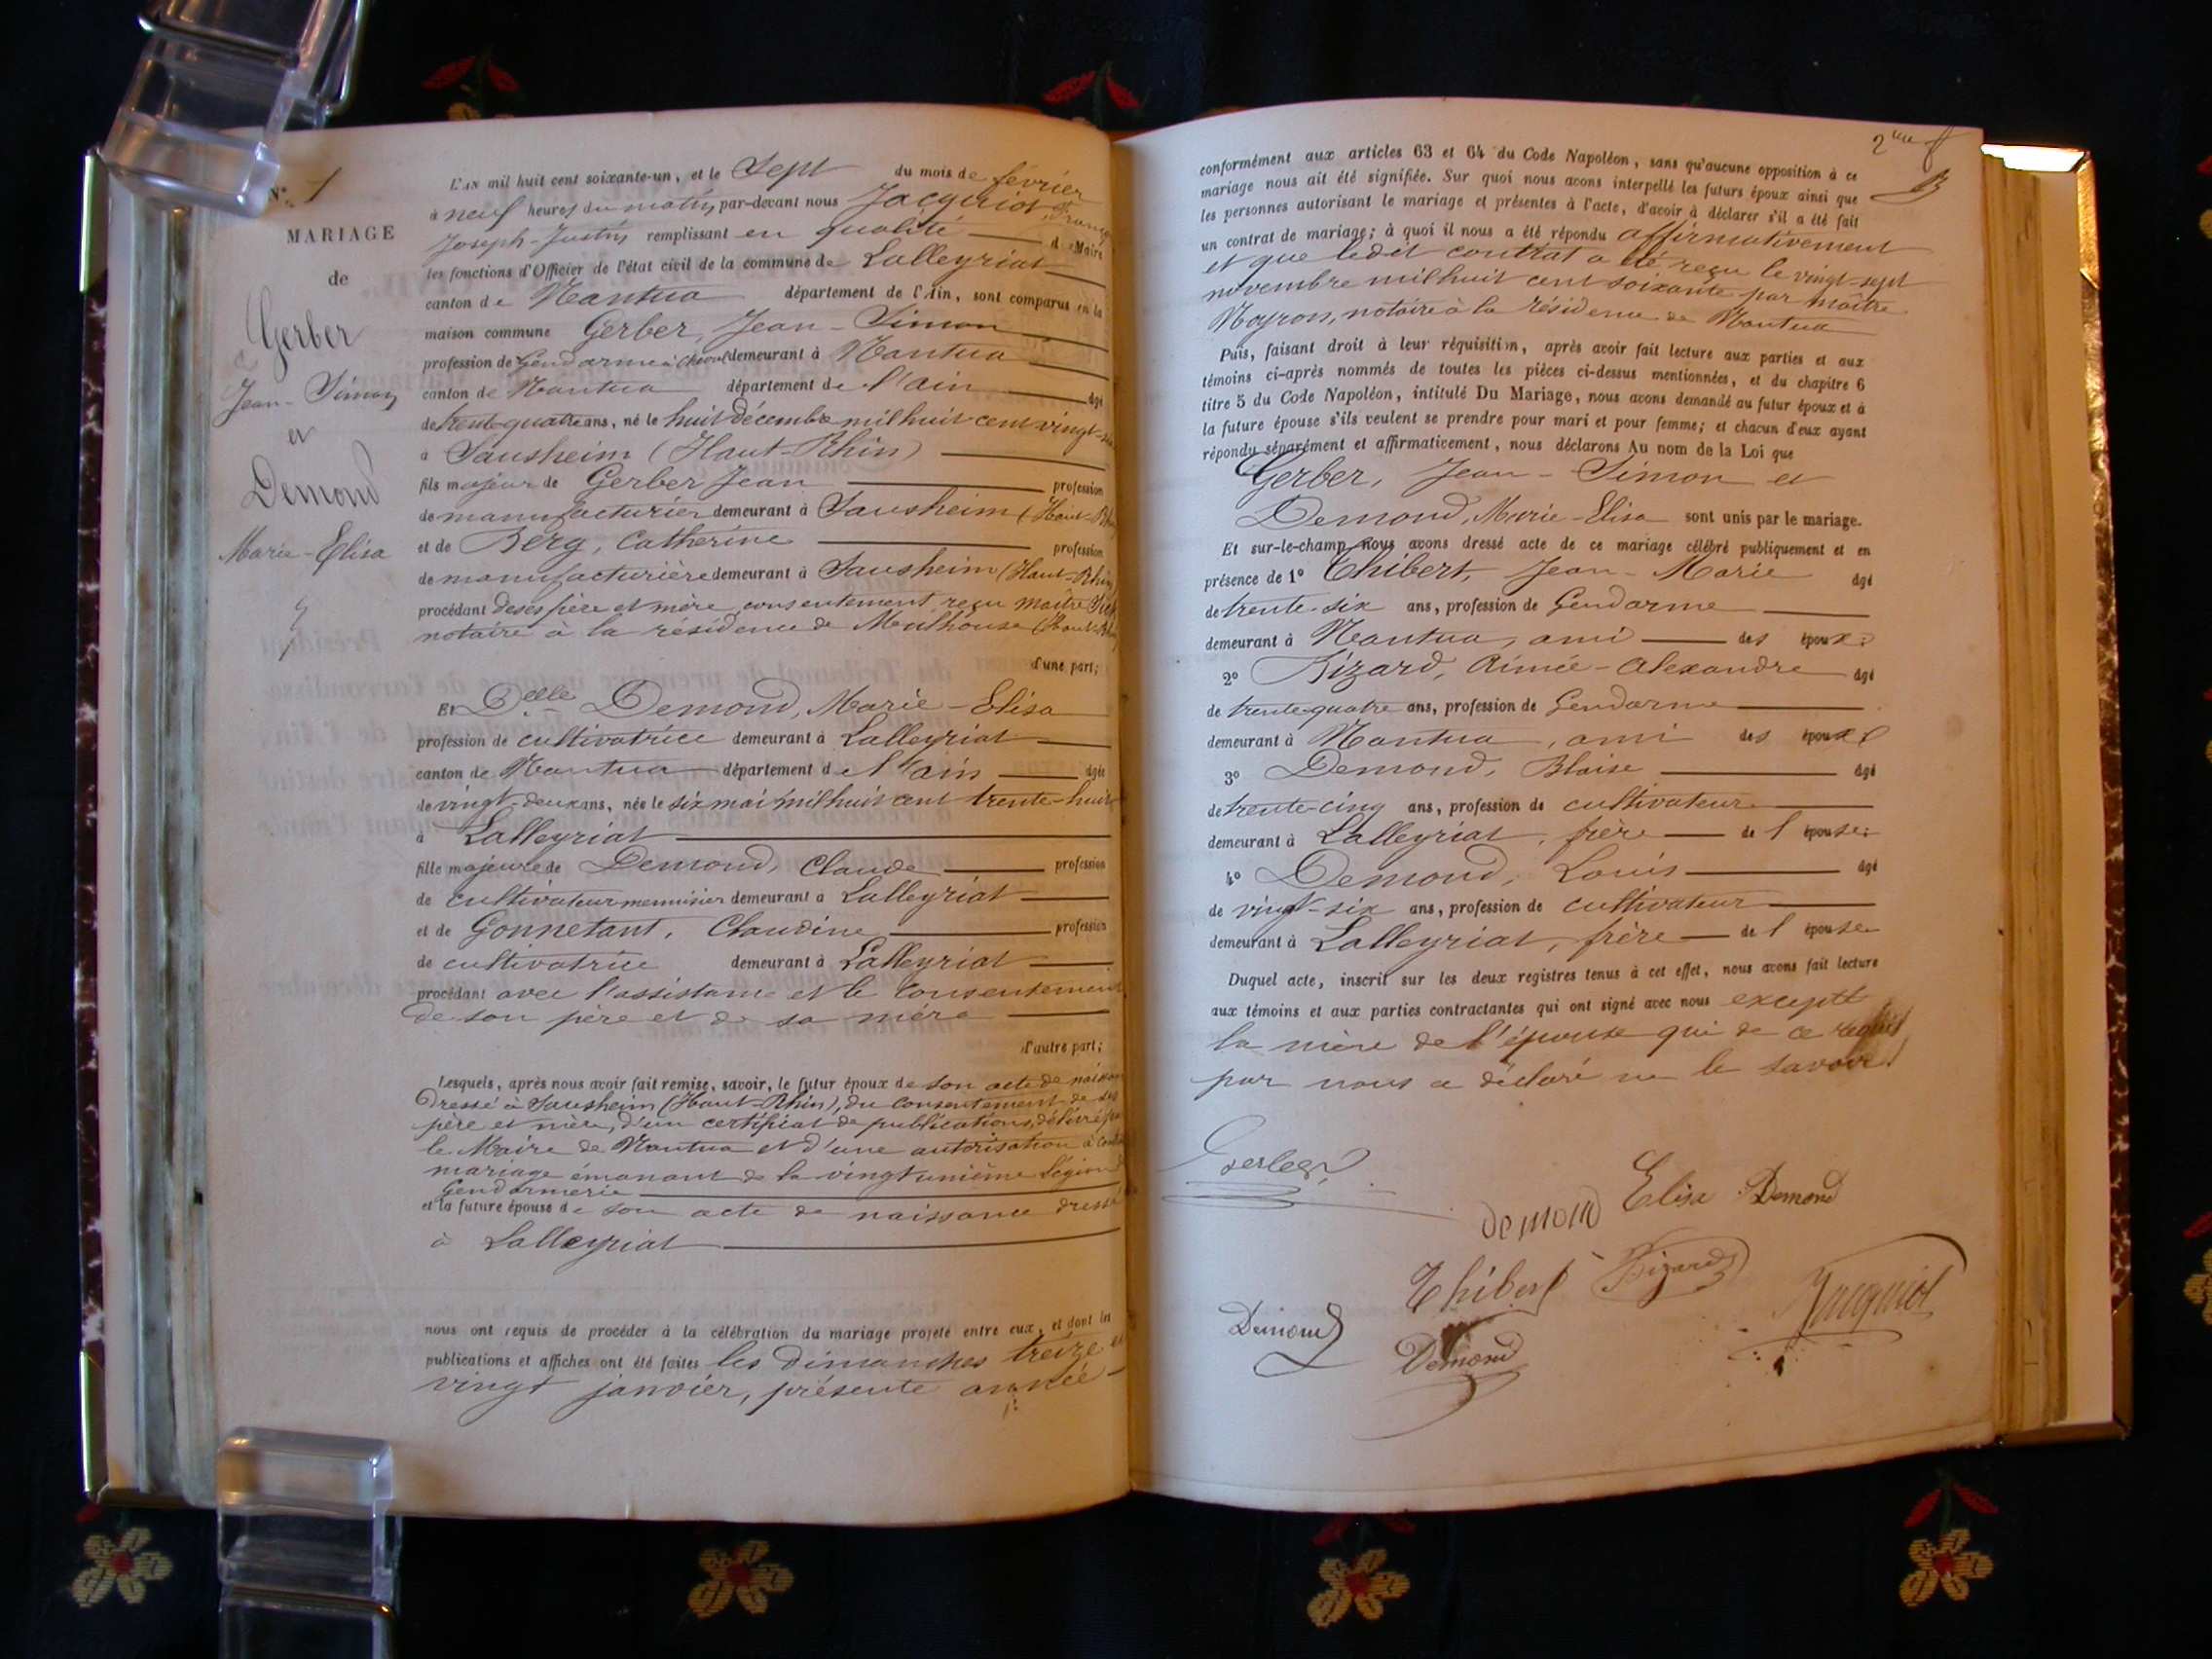 N° 1
MARIAGE
de
Gerber
Jean-Simon
et
Demond
Marie-Elisa
L'AN mil huit cent soixante-un, et le Sept du mois de février
à neuf heures du matin, par-devant nous Jacquiot, 
Joseph-Justin remplissant en qualité d Maire
les fonctions d'Officier de l'état civil de la commune de Lalleyriat
canton de Nantua département de l'Ain, sont comparus en la
maison commune Gerber, Jean-Simon
profession de Gendarme à Cheval demeurant à Nantua
canton de Nantua département de l'ain âgé
de trente-quatre ans, né le huit décembre mil huit cent vingt-six
à Sausheim (Haut-Rhin)
fils majeur de Gerber Jean profession
de manufacturier demeurant à Sausheim (Haut-Rhin
et de Berg, Catherine profession
de manufacturière demeurant à Sausheim (Haut-Rhin
procédant de ses père et mère, consentement reçu maître
notaire à la résidence de Mulhouse (Haut-Rhin
d'une part;
Et Delle Demond, Marie-Elisa
profession de cultivatrice demeurant à Lalleyriat
canton de Nantua département de l'ain âgée
de vingt-deux ans, née le six mai mil huit cent trente-huit
à Lalleyriat
fille majeure de Demond, Claude profession
de cultivateur menuisier demeurant à Lalleyriat
et de Gonnetant, Claudine profession
de cultivatrice demeurant à Lalleyriat
procédant avec l'assistance et le consentement
de son père et de sa mère
d'autre part;
Lesquels, après nous avoir fait remise, savoir, le futur époux de son acte de naissan
dressé à Sausheim (Haut-Rhin), du consentement de ses
père et mère, d'un certificat de publications, délivré par
le Maire de Nantua et d'une autorisation à
mariage émanant de la vingt unième Légion
Gendarmerie
et la future épouse de son acte de naissance dressé
à Lalleyriat
nous ont requis de procéder à la célébration du mariage projeté entre eux, et dont les
publications et affiches ont été faites les dimanches treize et
vingt janvier, présente année
2me f
conformément aux articles 63 et 64 du Code Napoléon, sans qu'aucune opposition à ce
mariage nous ait été signifiée. Sur quoi nous avons interpellé les futurs époux ainsi que
les personnes autorisant le mariage et présentes à l'acte, d'avoir à déclarer s'il a été fait
un contrat de mariage; à quoi il nous a été répondu affirmativement
et que ledit contrat a été reçu le vingt-sept
novembre mil huit cent soixante par maître
Moyron, notaire à la résidence de Nantua
Puis, faisant droit à leur réquisition, après avoir fait lecture aux parties et aux
témoins ci-après nommés de toutes les pièces ci-dessus mentionnées, et du chapitre 6
titre 5 du Code Napoléon, intitulé Du Mariage, nous avons demandé au futur époux et à
la future épouse s'ils veulent se prendre pour mari et pour femme; et chacun d'eux ayant
répondu séparément et affirmativement, nous déclarons Au nom de la Loi que
Gerber, Jean-Simon et
Demond, Marie-Elisa sont unis par le mariage.
Et sur-le-champ nous avons dressé acte de ce mariage célébré publiquement et en
présence de 1° Thibert, Jean-Marie âgé
de trente-six ans, profession de Gendarme
demeurant à Nantua, ami des époux.
2° Bizard, Aimée-Alexandre âgé
de trente-quatre ans, profession de Gendarme
demeurant à Nantua, ami des époux
3° Demond, Blaise âgé
de trente-cinq ans, profession de cultivateur
demeurant à Lalleyriat, frère de l épouse:
4° Demond, Louis âgé
de vingt-six ans, profession de cultivateur
demeurant à Lalleyriat, frère de l épouse
Duquel acte, inscrit sur les deux registres tenus à cet effet, nous avons fait lecture
aux témoins et aux parties contractantes qui ont signé avec nous excepté
la mère de l'épouse qui de ce requis
par nous a déclaré ne le savoir.
Gerber
demond
Elisa Demond
Thibert
Bizard
Jacquiot
Demond
Demond